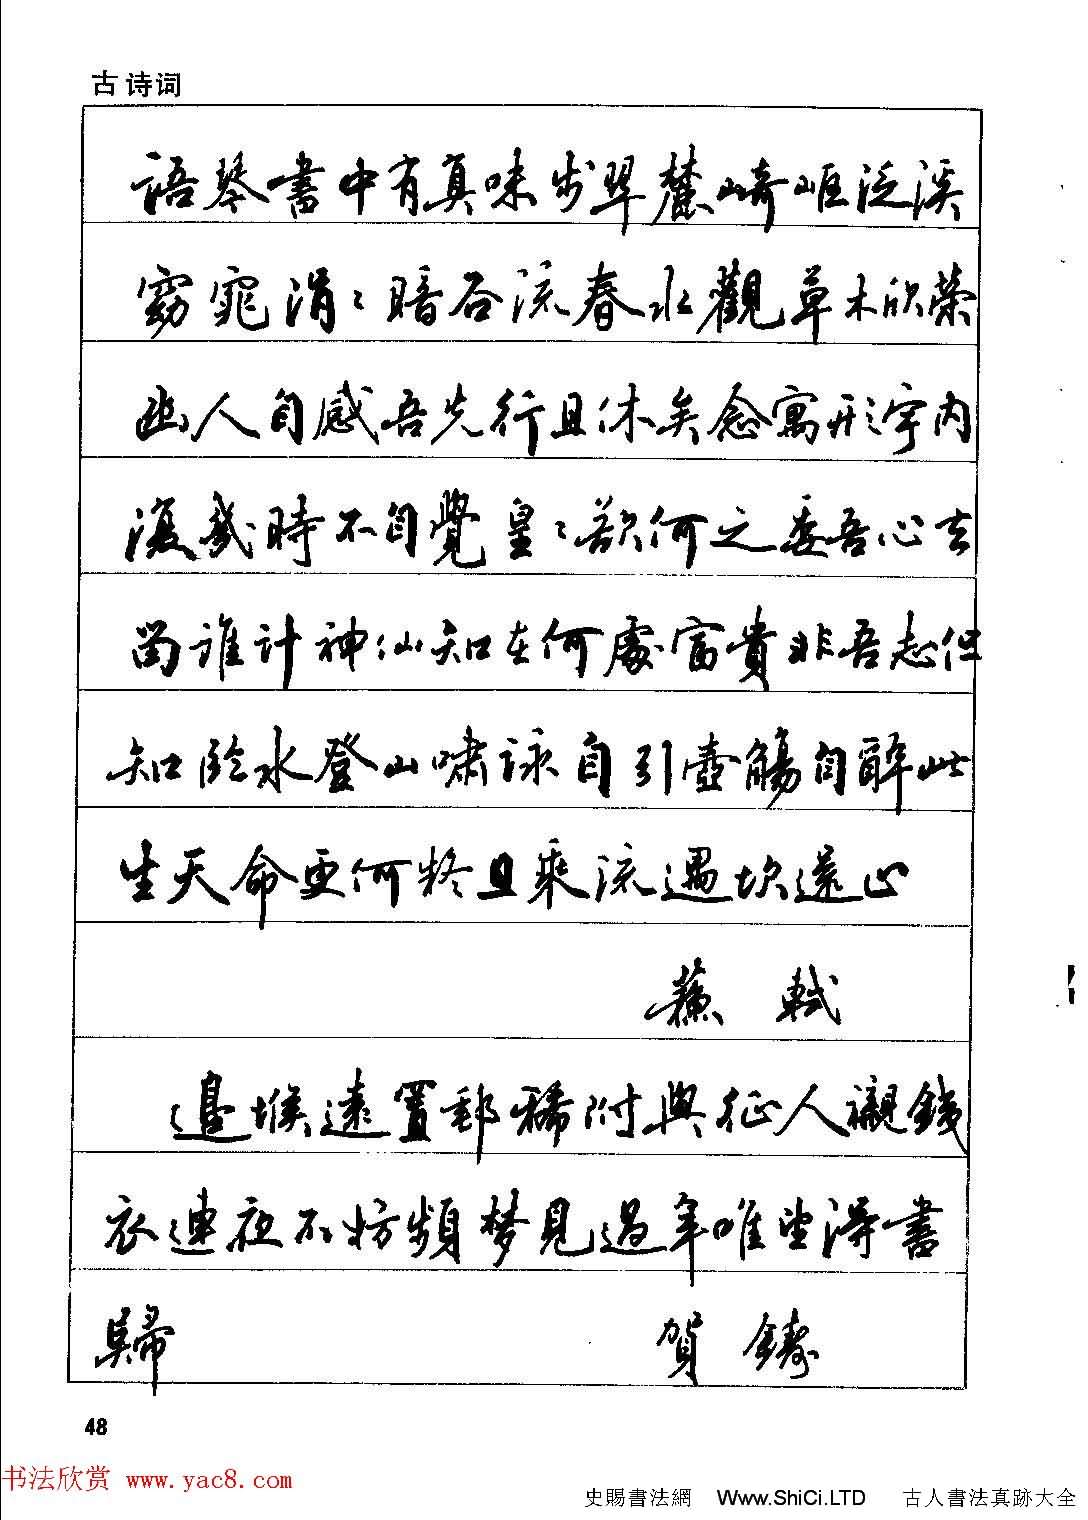 古诗词
語琴書中有真味步翠麓崎嶇泛溪
窈窕涓〻暗谷流春水觀草木欣榮
幽人自感吾生行且休矣念寓形宇内
復幾時不自覺皇〻欲何之委吾心去
留誰計神仙知在何處富貴非吾志但
知臨水登山嘯詠自引壺觴自醉此
生天命更何疑且乘流遇坎還止
蘇軾
邊堠遠置郵稀附與征人襯鐵
衣連夜不妨頻夢見過年唯望得書
歸 賀鑄
48
书法欣赏 www.yac8.com
史賜書法網 Www.ShiCi.LTD 古人書法真跡大全